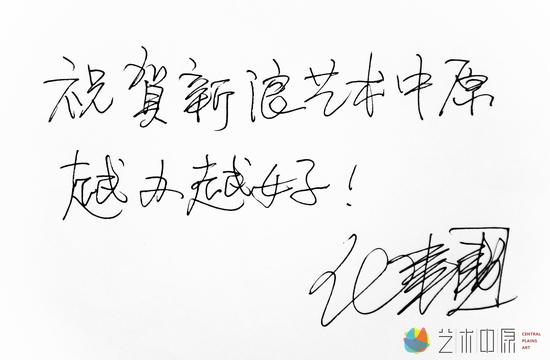 祝贺新浪艺术中原
越办越好！
艺术中原
CENTRAL
PLAINS
ART